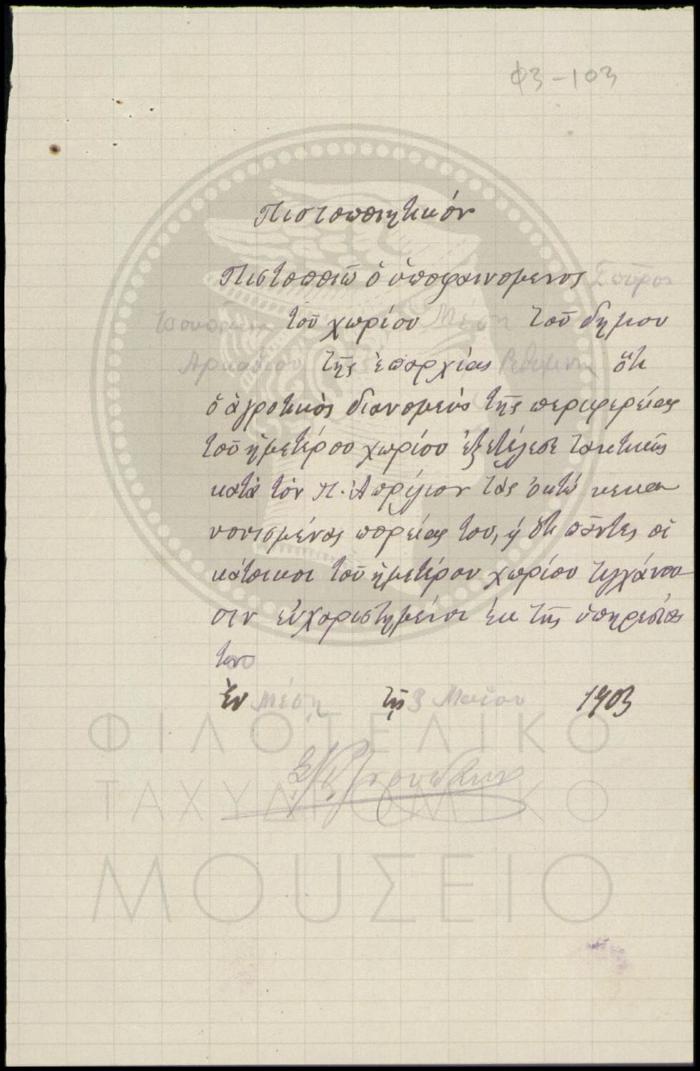 Φ3-103
Πιστοποιητικόν
Πιστοποιῶ ὁ ὑποφαινόμενος Σπῦρος
τοῦ χωρίου Μέση τοῦ δήμου
Ἀρκαδίου τῆς ἐπαρχίας Ρεθύμνης ὅτι
ὁ ἀγροτικὸς διανομεὺς τῆς περιφερείας
τοῦ ἡμετέρου χωρίου ἐξετέλεσε τακτικῶς
κατὰ τὸν π. Ἀπρίλιον τὰς ὀκτὼ κεκα
νονισμένας πορείας του, ἡ δὲ πάντες οἱ
κάτοικοι τοῦ ἡμετέρου χωρίου τυγχάνου
σιν εὐχαριστημένοι ἐκ τῆς ὑπηρεσίας
του
Ἐν Μέση τῇ 3 Μαΐου 1903
ΦΙΛΟΤΕΛΙΚΟ
ΤΑΧΥΔΡΟΜΙΚΟ
ΜΟΥΣΕΙΟ